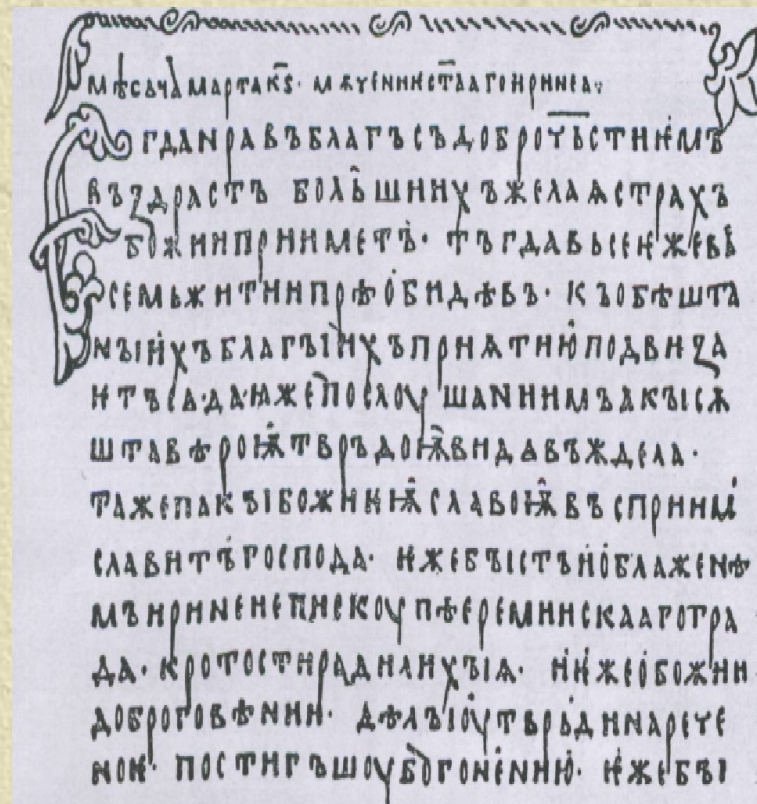 мѣсѧца марта к҃ꙅ· мѫченик ст҃ааго иринеа·
Егда нравъ благъ съ доброч҃ьстиимъ
въздрастъ большиихъ желаѩ страхъ
божии прииметъ· тъгда вьсеѩ же въ
семь житии прѣобидѣвъ· къ обѣшта
ныихъ благыихъ приѩтию подвиза
итъ сѧ· да ꙗже послоушаниимъ акы сѫ
шта вѣроѭ тврьдоѭ видѧвъжделѧ·
таже пакы божиѥѭ славоѭ въсприимъ
славитъ господа· иже быстъ и о блаженѣ
мъ иринеи еписко упѣ среминскааго гра
да· кротости ради лихыѩ· и иже о божии
доброговѣнии· дѣлы оутврьди нарече
ное· постигъшоу бо гонению· еже бы